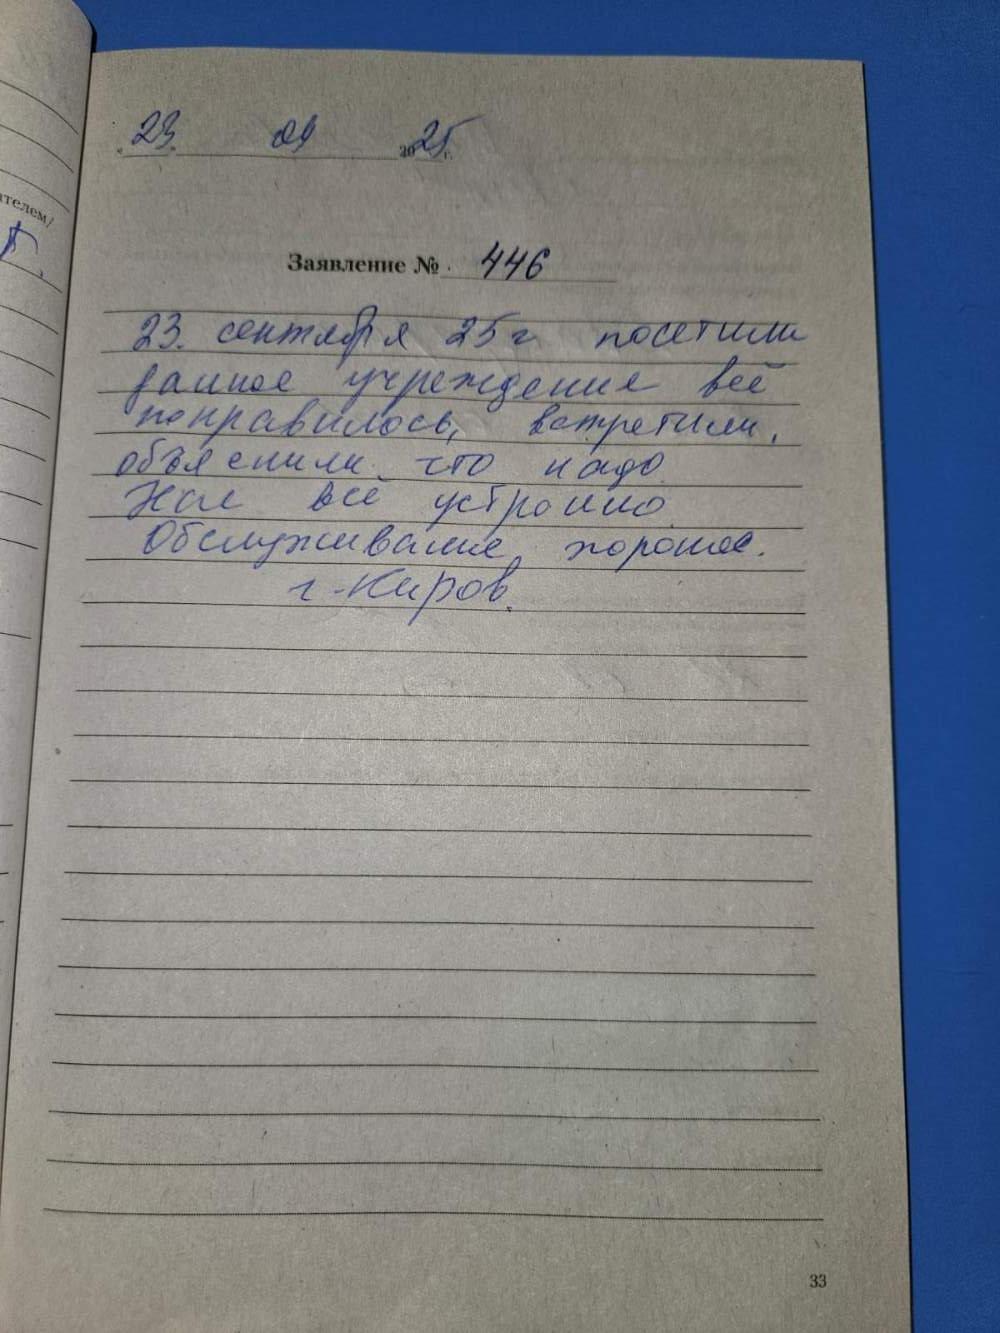 ателем/
г.
« 23. » 09 2025 г.
Заявление № 446
23. сентября 25 г посетили
данное учреждение всё
понравилось, встретили,
объяснили что надо.
Нас всё устроило.
Обслуживание хорошее.
г. Киров.
33